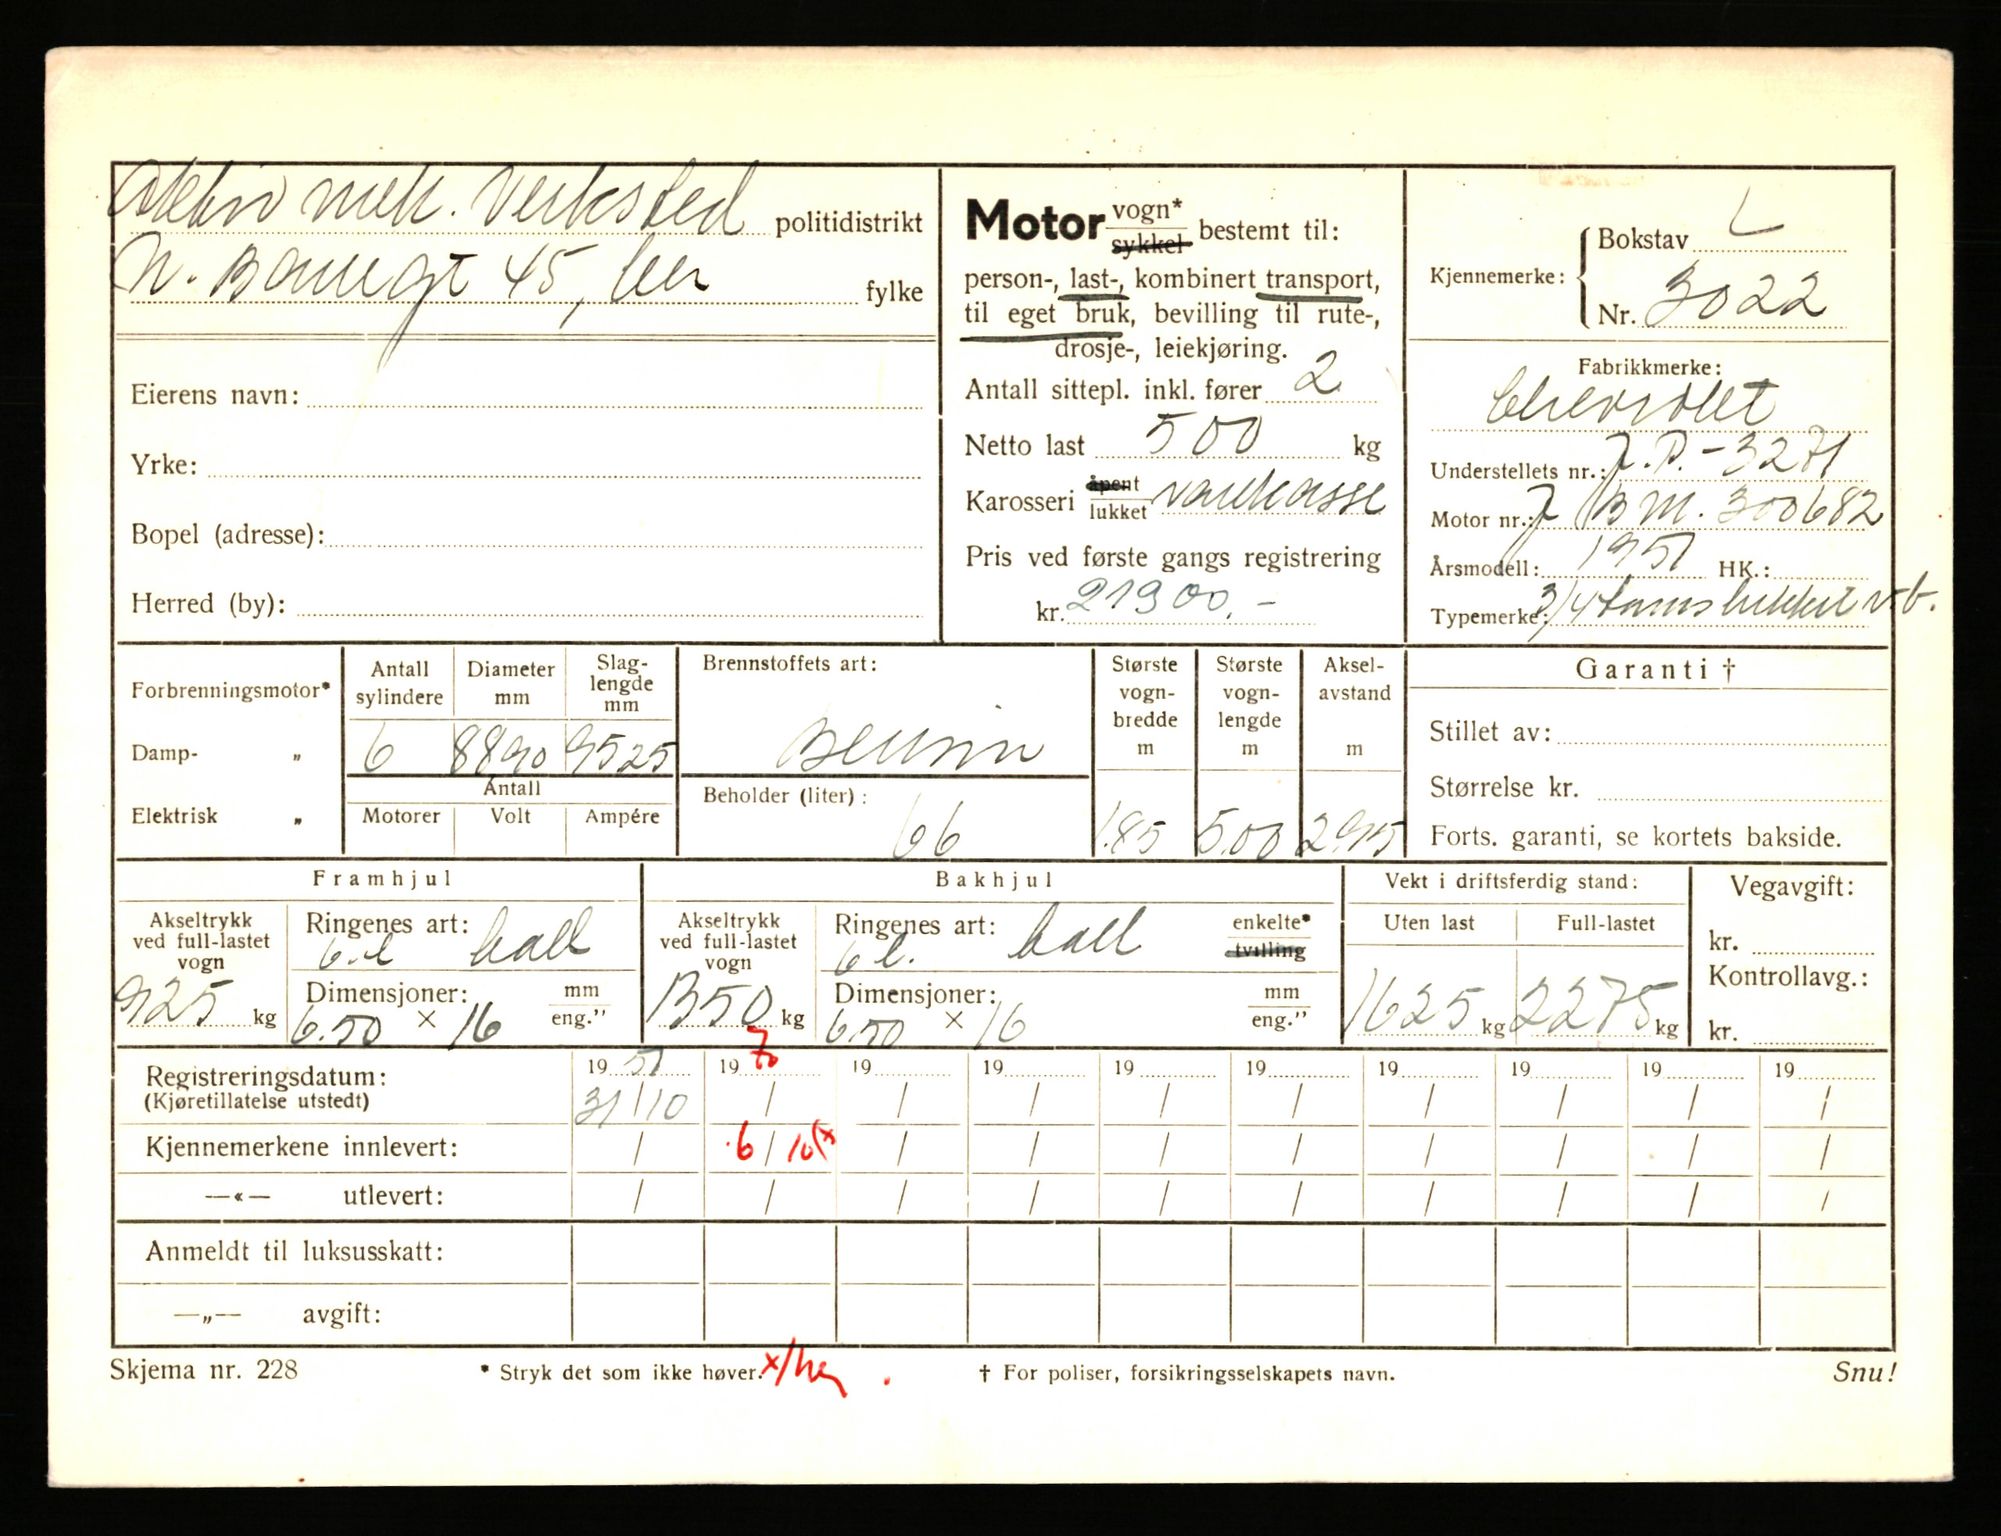 mek. Verksted politidistrikt
45, fylke
Eierens navn:
Yrke:
Bopel (adresse):
Herred (by):
Motor vogn* sykkel bestemt til:
person-, last-, kombinert transport,
til eget bruk, bevilling til rute-,
drosje-, leiekjøring.
Antall sittepl. inkl. fører 2
Netto last 500 kg
Karosseri åpent lukket varekasse
Pris ved første gangs registrering
kr. 21900,-
Kjennemerke: Bokstav L
Nr. 3022
Fabrikkmerke:
Chevrolet
Understellets nr.: J.P.-3271
Motor nr.: J B M. 300682
Årsmodell: 1951 HK.:
Typemerke: 3/4 tonns lukket v.b.
Forbrenningsmotor*
Damp- "
Elektrisk "
Antall sylindere
Diameter mm
Slag-lengde mm
6 8890 9525
Antall
Motorer Volt Ampére
Brennstoffets art:
Bensin
Beholder (liter): 66
Største vogn-bredde m
1.85
Største vogn-lengde m
5.00
Aksel-avstand m
2.945
Garanti †
Stillet av:
Størrelse kr.
Forts. garanti, se kortets bakside.
Framhjul
Akseltrykk ved full-lastet vogn
925 kg
Ringenes art: 6.l ball
Dimensjoner: mm
6.50 × 16 eng."
Bakhjul
Akseltrykk ved full-lastet vogn
1350 kg
Ringenes art: 6 l. ball enkelte* tvilling
Dimensjoner: mm
6.50 × 16 eng."
Vekt i driftsferdig stand:
Uten last Full-lastet
1625 kg 2275 kg
Vegavgift:
kr.
Kontrollavg.:
kr.
Registreringsdatum: 19 51 19 70 19 19 19 19 19 19 19 19
(Kjøretillatelse utstedt) 31/10 / / / / / / / / /
Kjennemerkene innlevert: / 6/10(x / / / / / / / /
—«— utlevert: / / / / / / / / / /
Anmeldt til luksusskatt:
—„— avgift:
Skjema nr. 228 * Stryk det som ikke høver. † For poliser, forsikringsselskapets navn. Snu!